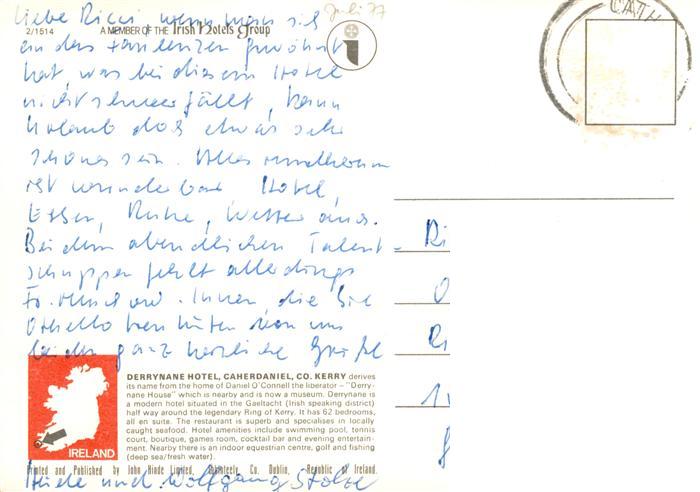 Juli 77
Liebe Ricci wenn man sich
2/1514
A MEMBER OF THE Irish Hotels Group
an das Faulenzen gewöhnt
hat, was bei diesem Hotel
nicht schwer fällt, kann
Urlaub doch etwas sehr
schönes sein. Alles rundherum
ist wunderbar Hotel,
Essen, Ruhe, Wetter
Bei dem abendlichen Talent-
schuppen fehlt allerdings
Ihnen, die Sie
Othello von uns
beiden ganz herzliche Grüße
Heide und Wolfgang Stolze
CATH
Ri
O
Ri
DERRYNANE HOTEL, CAHERDANIEL, CO. KERRY derives
its name from the home of Daniel O'Connell the liberator – "Derry-
nane House" which is nearby and is now a museum. Derrynane is
a modern hotel situated in the Gaeltacht (Irish speaking district)
half way around the legendary Ring of Kerry. It has 62 bedrooms,
all en suite. The restaurant is superb and specialises in locally
caught seafood. Hotel amenities include swimming pool, tennis
court, boutique, games room, cocktail bar and evening entertain-
ment. Nearby there is an indoor equestrian centre, golf and fishing
(deep sea/fresh water).
IRELAND
Printed and Published by John Hinde Limited, Cabinteely, Co. Dublin, Republic of Ireland.